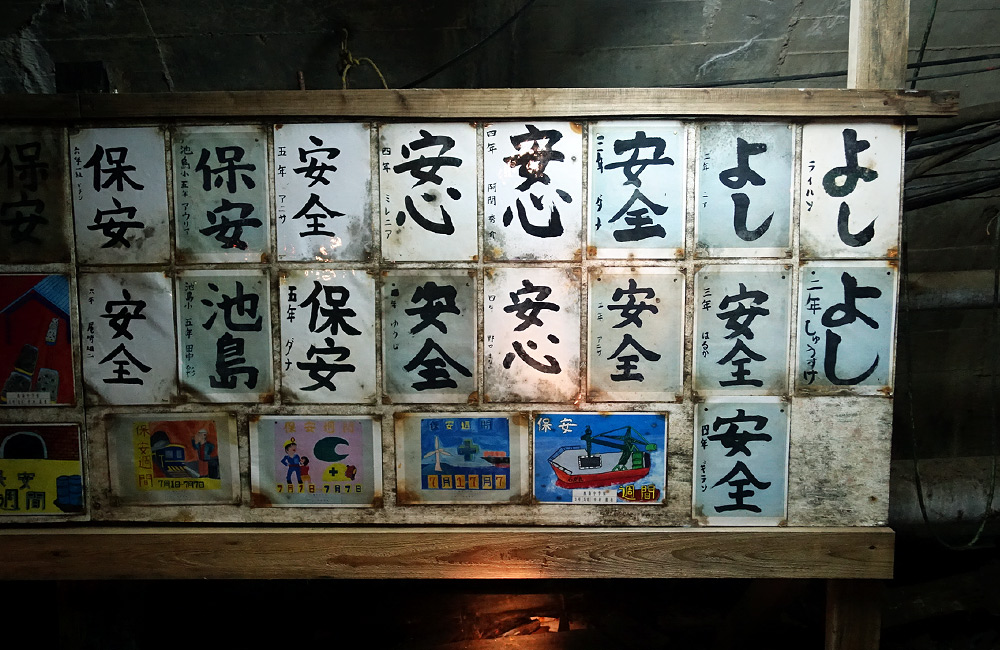 よし
ライハン
よし
二年
安全
安心
四年
安心
四年 ミレニア
安全
五年 アニサ
保安
池島小五年 アウリア
保安
保安
よし
二年 しゅうすけ
安全
三年 はるか
安全
二年 アニサ
安心
安全
保安
五年 ダナ
池島
池島小 五年 田中
安全
六年
保安週間
7月1日-7月7日
保安週間
7月7日-7月7日
保安週間
7月1日7月7日
保安
週間
安全
四年
保安
週間